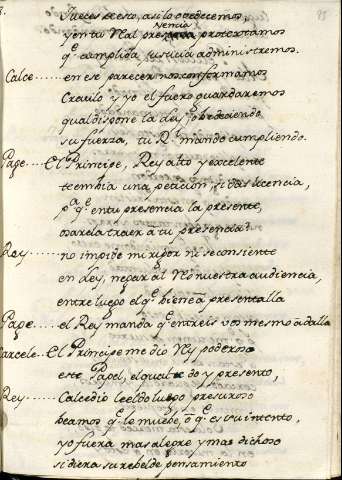 Jueces acesto, asi lo obedecemos,
y en tu Real presencia protextamos
q.e cumplida justicia administremos.
Calce..... en ese parecer nos conformamos
Cratilo y yo el fuero guardaremos
qual dispone la ley, obedeciendo
su fuerza, tu R.l mando cumpliendo.
Page..... El Principe, Rey alto y excelente
te embia una peticion, si das licencia,
p.a q.e en tu presencia la presente,
o sarela traer a tu presencia?
Rey..... no impide mi rigor ni se consiente
en Ley, negar al Reo nuestra audiencia,
entre luego el q.e biene a presentalla
Page..... el Rey manda q.e entreis vos mesmo a dalla
Carcele. El Principe me dio Rey poderoso
este Papel, el qual te do y presento,
Rey..... Calcedio leelo luego presuroso
beamos q.e lo muebe, o q.e es su intento,
yo fuera mas alegre y mas dichoso
si diera su rebelde pensamiento
95